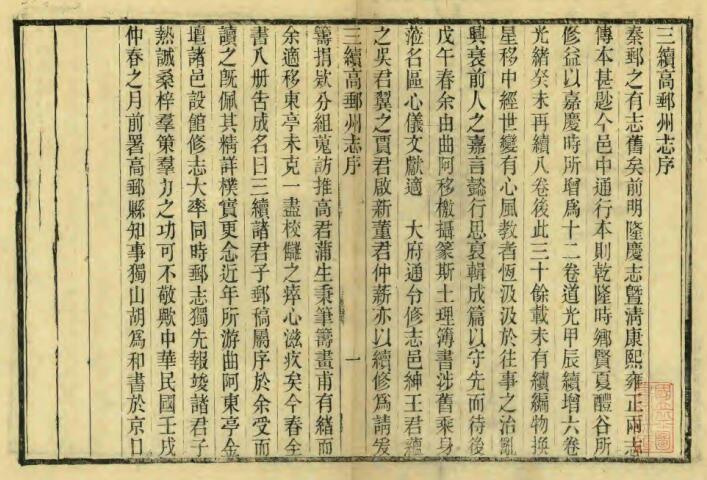 三續高郵州志序
秦郵之有志舊矣前明隆慶志暨清康熙雍正兩志
傳本甚尠今邑中通行本則乾隆時鄉賢夏醴谷所
修益以嘉慶時所增爲十二卷道光甲辰續增六卷
光緒癸未再續八卷後此三十餘載未有續編物換
星移中經世變有心風教者恆汲汲於往事之治亂
興衰前人之嘉言懿行思裒輯成篇以守先而待後
戊午春余由曲阿移檄攝篆斯土理簿書涉舊乘身
蒞名區心儀文獻適 大府通令修志邑紳王君蘊
之吳君翼之賈君啟新董君仲薪亦以續修爲請爰
三續高郵州志序
一
籌捐欵分組蒐訪推高君蒲生秉筆籌畫甫有緒而
余適移東亭未克一盡校讎之瘁心滋疚矣今春全
書八册告成名曰三續諸君子郵稿屬序於余受而
讀之旣佩其精詳樸實更念近年所游曲阿東亭金
壇諸邑設館修志大率同時郵志獨先報竣諸君子
熱誠桑梓羣策羣力之功可不敬歟中華民國壬戌
仲春之月前署高郵縣知事獨山胡爲和書於京口